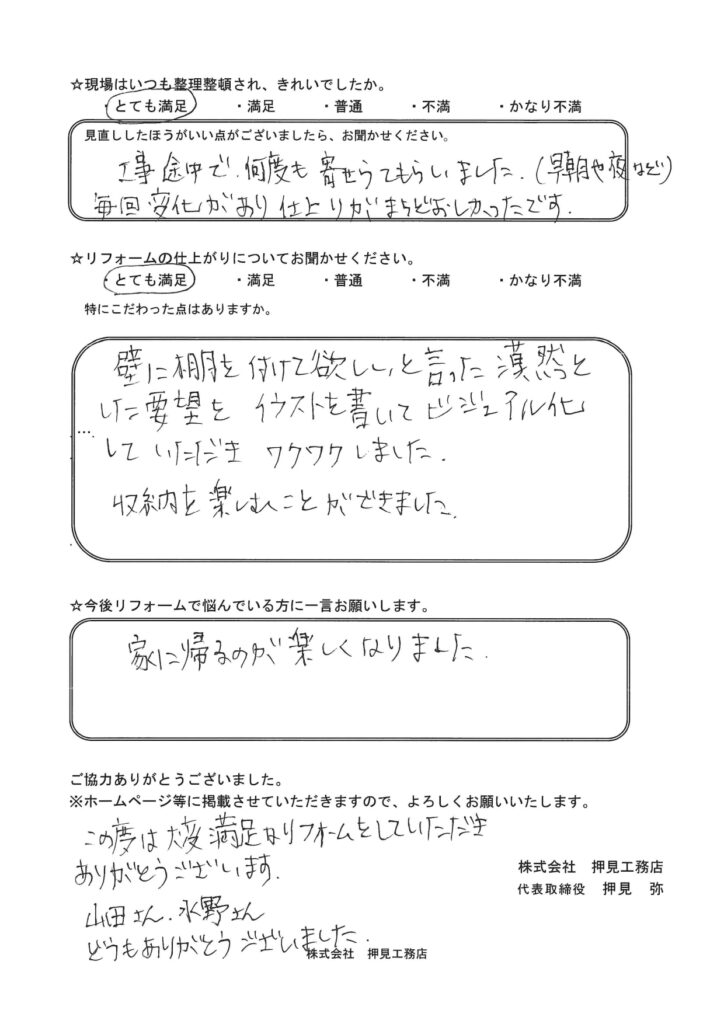 ☆現場はいつも整理整頓され、きれいでしたか。
・とても満足 ・満足 ・普通 ・不満 ・かなり不満
見直ししたほうがいい点がございましたら、お聞かせください。
工事途中で、何度も寄せらてもらいました.(早朝や夜など)
毎回変化があり仕上りがまちどおしかったです.
☆リフォームの仕上がりについてお聞かせください。
・とても満足 ・満足 ・普通 ・不満 ・かなり不満
特にこだわった点はありますか。
壁に棚を付けて欲しい、と言った漠然と
した要望を イラストを書いてビジュアル化
…
していただき ワクワクしました.
収納を楽しむことができました.
☆今後リフォームで悩んでいる方に一言お願いします。
家に帰るのが楽しくなりました.
ご協力ありがとうございました。
※ホームページ等に掲載させていただきますので、よろしくお願いいたします。
この度は大変満足なリフォームをしていただき
ありがとうございます.
株式会社 押見工務店
代表取締役 押見 弥
山田さん.水野さん
どうもありがとうございました.
株式会社 押見工務店